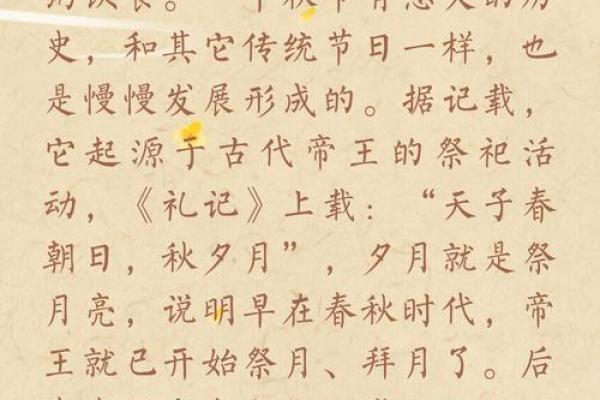 史，和其它传统节日一样，也
是慢慢发展形成的。据记载，
它起源于古代帝王的祭祀活
动，《礼记》上载：“天子春
朝日，秋夕月”，夕月就是祭
月亮，说明早在春秋时代，帝
王就已开始祭月、拜月了。后